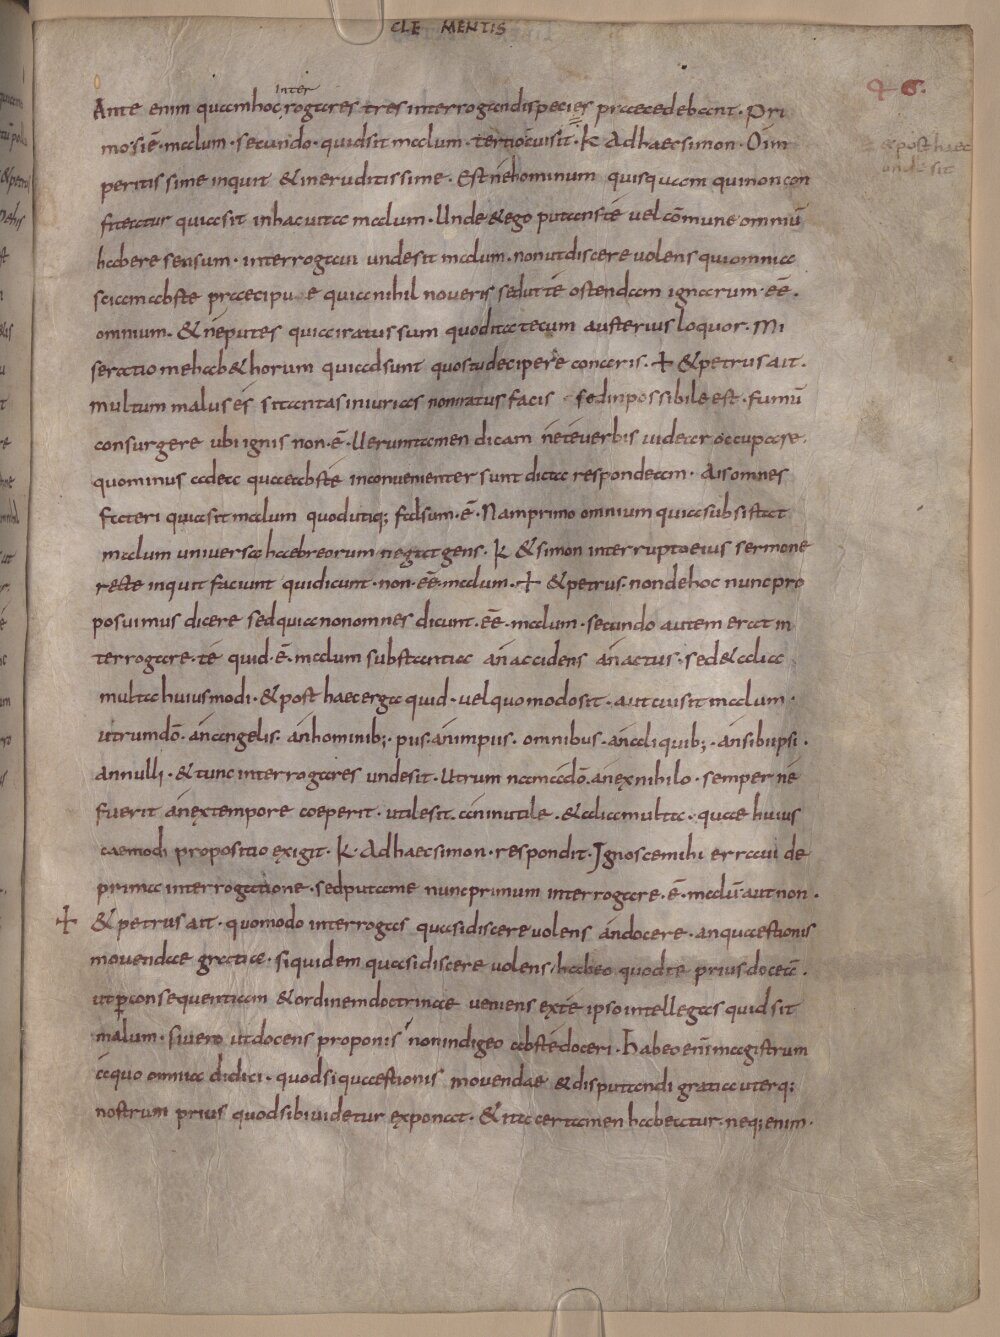 CLEMENTIS
46.
Ante enim quam hoc interrogares tres interrogandi species praecedebant. Pri
mo si ē. malum. secundo. quid sit malum. tertio cui sit. K Ad haec simon. O im
& post haec
unde sit
peritissime inquit & ineruditissime. Est ne hominum quisquam qui non con
fiteatur quia sit in hac uita malum. Unde & ego putans té uel cōmune omniū
habere sensum. interrogaui unde sit malum. non ut discere uolens qui omnia
sciam abs te praecipue quia nihil noueris sed ut té ostendam ignarum. eē.
omnium. & né putes quia iratus sum quod ita tecum austerius loquor. Mi
seratio me hab& horum qui adsunt quos tu decipere conaris. + & petrus ait.
multum malus és si tantas iniurias non iratus facis sed inpossibile est. fumū
consurgere ubi ignis non. ē. Uerumtamen dicam né té uerbis uidear occupare.
quominus ad ea quae abs té inconuenienter sunt dicta respondeam. Ais omnes
fateri quia sit malum quod utiq; falsum. ē. Nam primo omnium quia subsistat
malum uniuersa haebreorum negat gens. K & simon interrupto eius sermone
recte inquit faciunt qui dicunt. non. eē. malum. + & petrus. non de hoc nunc pro
posuimus dicere sed quia non omnes dicunt. eē. malum. secundo autem erat in
terrogare. té quid. ē. malum substantia án accidens án actus. sed & alia
multa huiusmodi. & post haec erga quid. uel quomodo sit. aut cui sit malum.
utrum dō. án angelis. án hominib;. pus. án impiis. omnibus. án aliquib;. an sibi ipsi.
an nulli. & tunc interrogares unde sit. Utrum nam á dō. án ex nihilo. semper né
fuerit án ex tempore coeperit. utile sit. án inutile. & alia multa. quae huius
caemodi propositio exigit. K. Ad haec simon. respondit. Ignosce mihi erraui de
prima interrogatione. sed puta me nunc primum interrogare. ē. malū aut non.
+ & petrus ait. quomodo interrogas quasi discere uolens án docere. an quaestionis
mouendae gratiae. siquidem quasi discere uolens. habeo quod te prius doceā.
ut per consequentiam & ordinem doctrinae ueniens ex té ipso intellegas quid sit
malum. si uero ut docens proponis non indigeo abs té doceri. habeo enī magistrum
á quo omnia didici. quod si quaestionis mouendae & disputandi gratia uterq;
nostrum prius quod sibi uidetur exponat. & ita certamen habeatur. neq; enim.